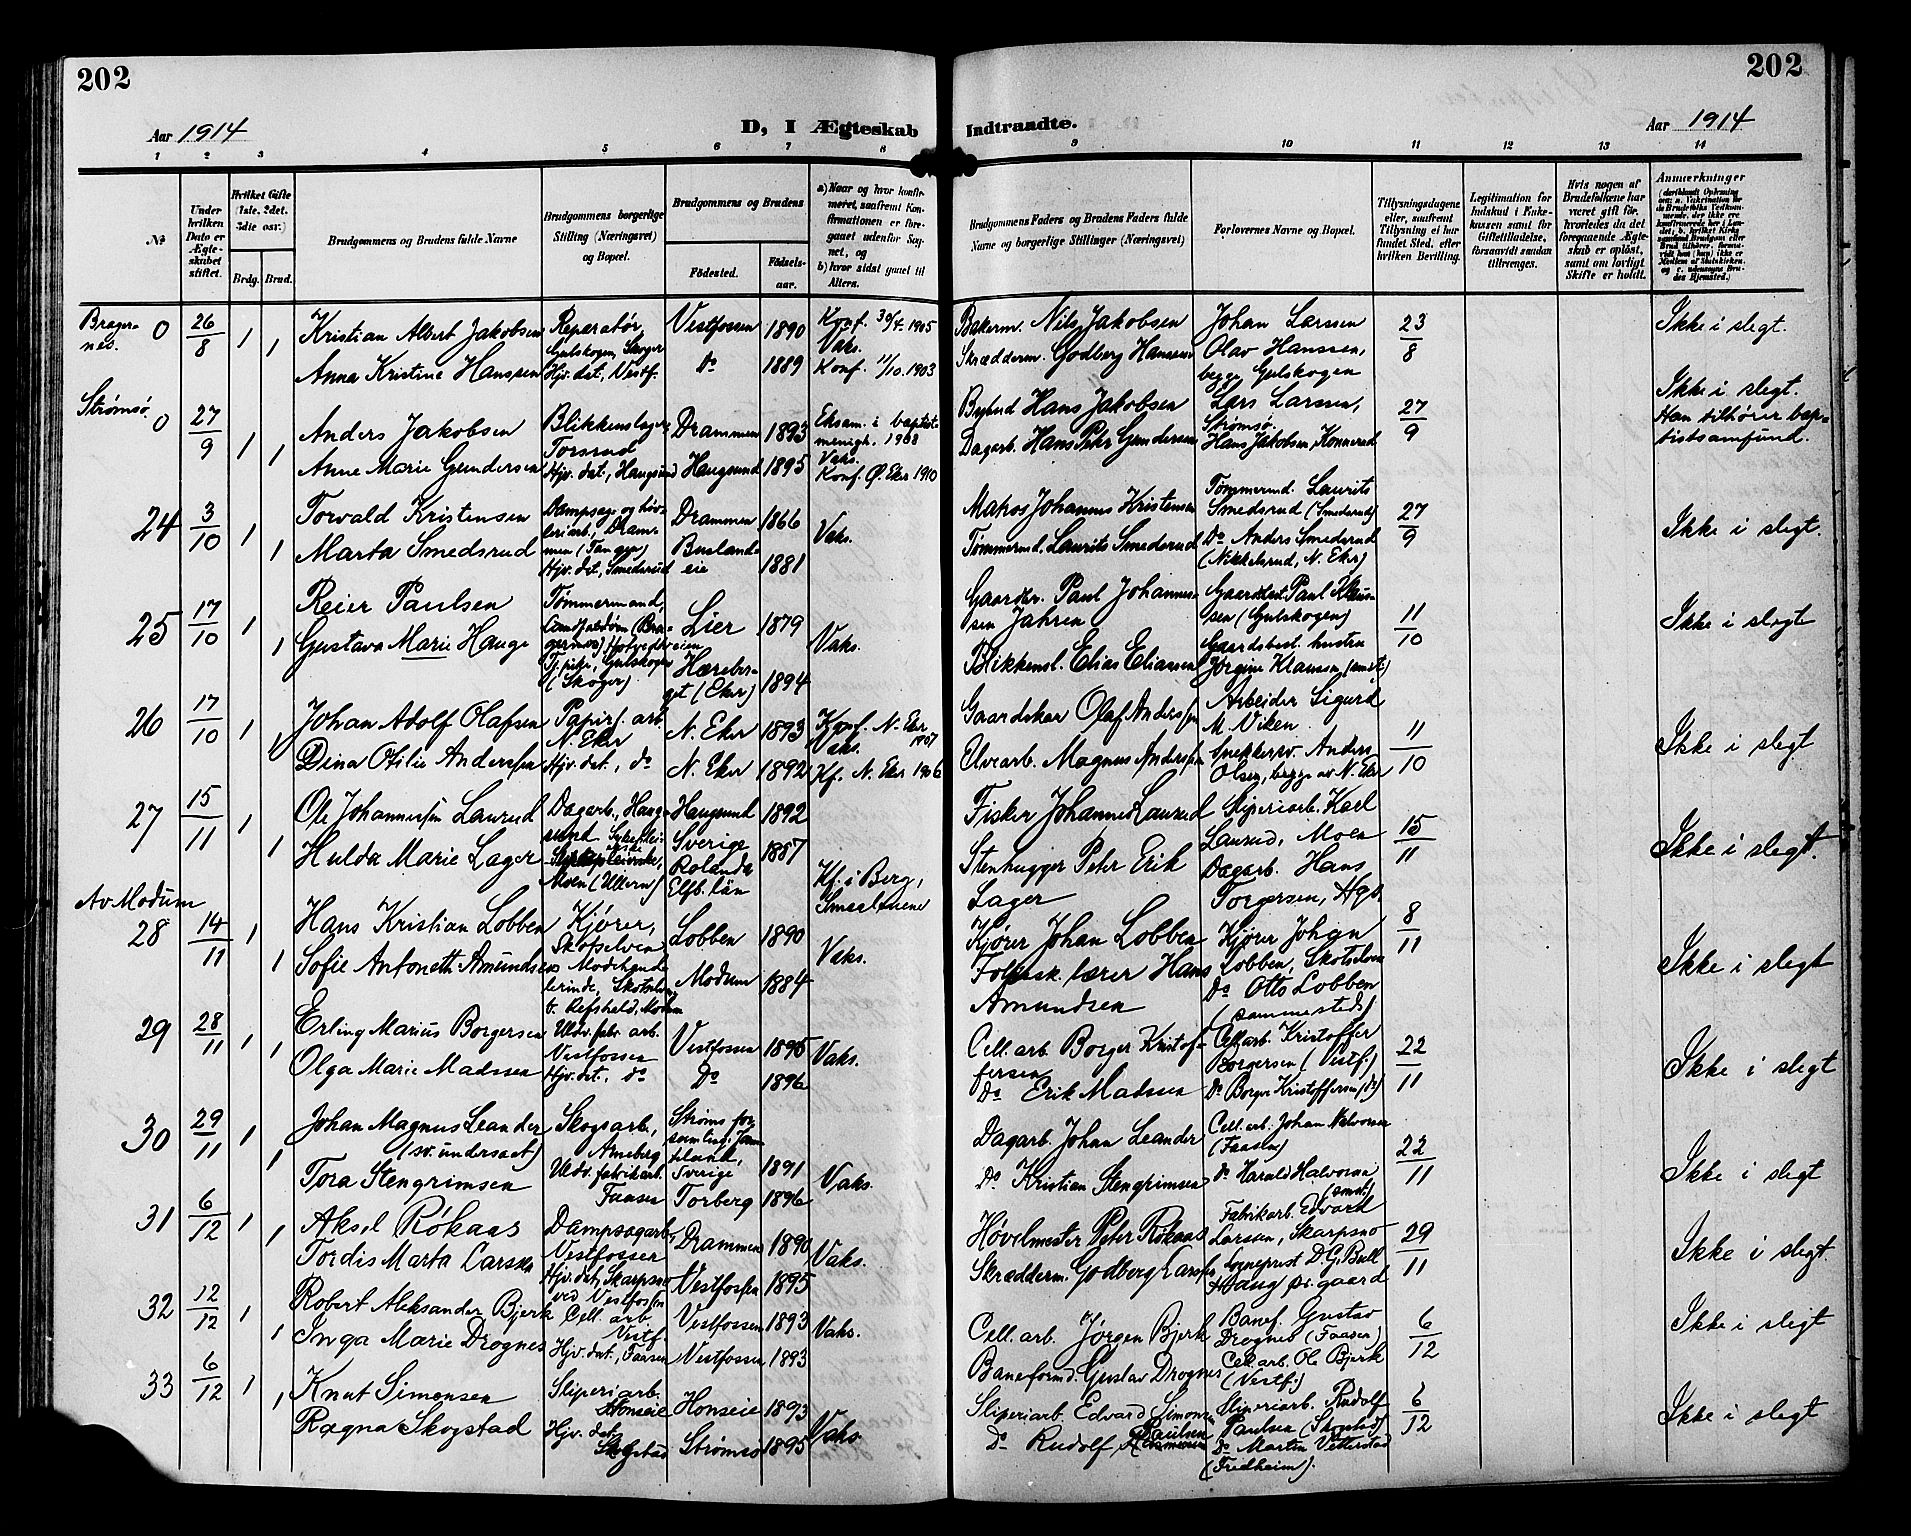 202
202
Aar 1914
D, I Ægteskab
Indtraadte.
Aar 1914
1 2 3 4 5 6 7 8 9 10 11 12 13 14
No
Under hvilken Dato er Ægteskabet stiftet.
Hvilket Gifte (1ste, 2det, 3die osv.)
Brdg. Brud.
Brudgommens og Brudens fulde Navne
Brudgommens borgerlige Stilling (Næringsvei) og Bopæl.
Brudgommens og Brudens
Fødested. Fødselsaar.
a) Naar og hvor konfirmeret, saafremt Konfirmationen er foregaaet udenfor Sognet, og
b) hvor sidst gaaet til Alters.
Brudgommens Faders og Brudens Faders fulde Navne og borgerlige Stillinger (Næringsvei)
Forlovernes Navne og Bopæl.
Tillysningsdagene eller, saafremt Tillysning ei har fundet Sted, efter hvilken Bevilling.
Legitimation for Indskud i Enkekassen samt for Giftetilladelse, forsaavidt saadan tiltrænges.
Hvis nogen af Brudefolkene har været gift før, hvorledes da det foregaaende Ægteskab er opløst, samt om lovligt Skifte er holdt.
Anmerkninger
Bragernes. 0 26/8 1 1
Kristian Albert Jakobsen Reparatør, Gulskogen, Skoger Vestfossen 1890 Konf. 30/4. 1905 Vaks.
Anna Kristine Hanssen Hjv. dat., Vestf. Do 1889 Konf. 11/10. 1903
Bakerm. Nils Jakobsen Johan Larssen 23/8 Ikke i slegt.
Skrædderm. Godberg Hanssen Olav Hanssen, begge Gulskogen
Strømsø. 0 27/9 1 1
Anders Jakobsen Blikkenslager, Torsrud Drammen 1893 Eksam. i baptistmenigh. 1908 Vaks.
Anne Marie Gundersen Hjv. dat., Haugsund Haugsund 1895 Konf. Ø. Eker 1910
Bybud Hans Jakobsen Lars Larssen, Strømsø. 27/9 Ikke i slegt. Han tilhører baptistsamfund.
Dagarb. Hans Petr Gundersen Hans Jakobsen, Konnerud
24 3/10 1 1
Torvald Kristensen Dampsag og høvleriarb., Drammen (Tangen) Drammen 1866 Vaks.
Marta Smedsrud Hjv. dat., Smedsrud Buslandseie 1881
Matros Johannes Kristensen Tømmermd. Laurits Smedsrud (Smedsrud) 27/9 Ikke i slegt.
Tømmermd. Laurits Smedsrud Do Anders Smedsrud (Nikkelsrud, N. Eker)
25 17/10 1 1
Reier Paulsen Tømmermand, Lier 1879 Vaks.
Gustava Marie Hauge Tj. pike, Gulskogen (Skoger) (Eker) 1894
Gaardbr. Paul Johannessen Jahren Gaardbest. Paul Klaussen (Gulskogen) 11/10 Ikke i slegt
Blikkensl. Elias Eliassen Gaardsbest. hustru Jørgine Klaussen (smst.)
26 17/10 1 1
Johan Adolf Olafsen Papirf. arb. N. Eker N. Eker 1893 Konf. N. Eker 1907 Vaks.
Dina Otilie Anderssen Hjv. dat., do N. Eker 1892 Kf. N. Eker 1906
Gaardskar Olaf Anderssen Arbeider Sigurd M. Viken 11/10 Ikke i slegt
Elvearb. Magnus Anderssen Snekkersv. Anders Olsen, begge av N. Eker
27 15/11 1 1
Ole Johannessen Laurud Dagarb., Haugsund Haugsund 1892
Hulda Marie Lager Moen (Ullern) Sverige Rolanda Elfb. län 1887 Kf. i Berg, Smaalenene
Fisker Johannes Laurud Sliperiarb. Karl Laurud, Moen 15/11 Ikke i slegt.
Stenhugger Peter Erik Lager Dagarb. Hans Torgersen, Hgs.
Av Modum
28 14/11 1 1
Hans Kristian Lobben Kjører, Skotselven Lobben 1890 Vaks.
Sofie Antonette Amundsen Modehandlerinde, Skotselven, f. Refshald, Modum Modum 1884
Kjører Johan Lobben Kjører Johan Lobben, Skotselven 8/11 Ikke i slegt
Folkesk. lærer Hans Amundsen Do Otto Lobben (sammesteds)
29 28/11 1 1
Erling Marius Borgersen Uldv. fabr. arb. Vestfossen Vestfossen 1895 Vaks.
Olga Marie Madssen Hjv. dat., do Do 1896
Cell. arb. Borger Kristoffersen Cell. arb. Kristoffer Borgersen (Vestf.) 22/11 Ikke i slegt
Do Erik Madssen Do Borger Kristoffersen (do)
30 29/11 1 1
Johan Magnus Leander (sv. undersaat) Skogsarb., Arneberg Strøms forsamling, Jemteland, Sverige 1891 Vaks.
Tora Stengrimsen Uldv. fabrikarb. Faasen Torberg 1896
Dagarb. Johan Leander Cell. arb. Johan Halvorsen (Faasen) 22/11 Ikke i slegt
Do Kristian Stengrimsen Do Harald Halvorsen (smst.)
31 6/12 1 1
Aksel Røkaas Dampsagarb., Vestfossen Drammen 1890 Vaks.
Tordis Marta Larssen Hjv. dat., Skarpsno ved Vestfossen Vestfossen 1895
Høvelmester Peter Røkaas Fabrikarb. Edvard Larsen, Skarpsno 29/11 Ikke i slegt.
Skrædderm. Godberg Larssen Sogneprest D. G. Bull Haug pr.gaard
32 12/12 1 1
Robert Aleksander Bjerk Cell. arb. Vestf. Vestfossen 1893 Vaks.
Inga Marie Drognes Hjv. dat., Faasen Vestfossen 1893
Cell. arb. Jørgen Bjerk Banef. Gustav Drognes (Faasen) 6/12 Ikke i slegt
Baneformd. Gustav Drognes Cell. arb. Ole Bjerk (Vestf.)
33 6/12 1 1
Knut Simonsen Sliperiarb. Honseie Honseie 1893 Vaks.
Ragna Skogstad Hjv. dat., Skogstad Strømsø 1895
Sliperiarb. Edvard Simonsen Sliperiarb. Rudolf Paulsen (Skogstad) 6/12 Ikke i slegt
Do Rudolf Paulsen Do Martin Vetterstad (Fredheim).